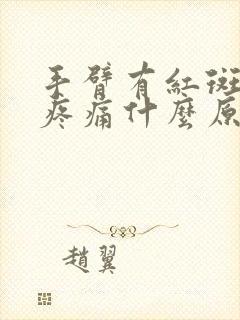 手臂有紅斑
疼痛什麼原
趙翼